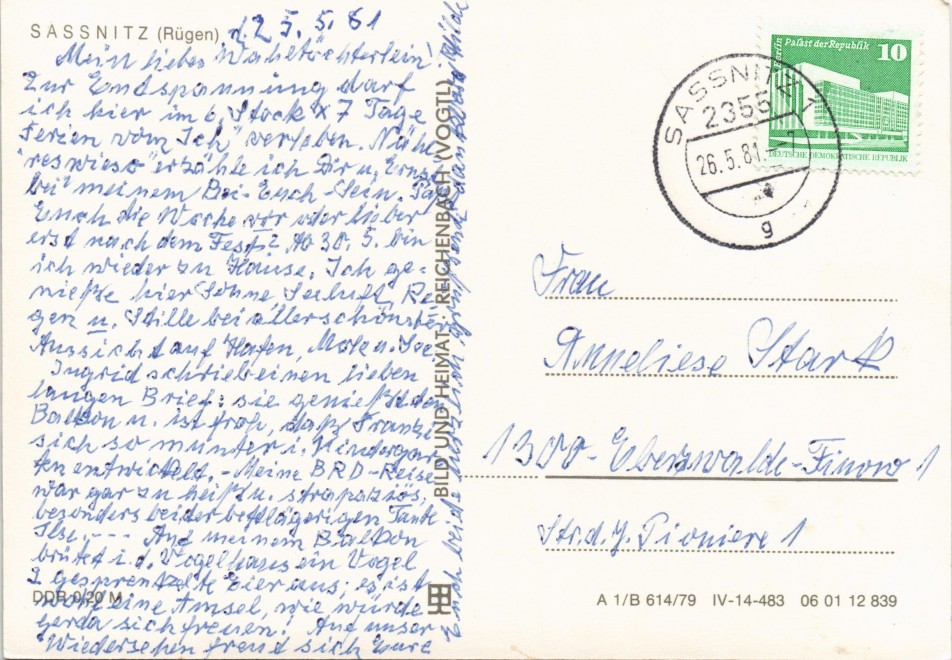 SASSNITZ (Rügen), d. 25. 5. 81
Mein liebes Wahltöchterlein!
Zur Entspannung darf
ich hier im 6. Stock x 7 Tage
"Ferien vom Ich" verleben. Näh
"reswieso" erzähle ich Dir u. Ernst
bei meinem Bei-Euch-Sein.
Euch die Woche vor oder lieber
erst nach dem Fest? Ab 30. 5. bin
ich wieder zu Hause. Ich ge-
nieße hier Sonne Seeluft, Re
gen u. Stille bei allerschönster
Aussicht auf Hafen, Mole u. See
Ingrid schrieb einen lieben
langen Brief: sie genießt den
Balkon u. ist froh, daß
sich so munter i. Kindergar
ten entwickelt. - Meine BRD-Reise
war gar zu heiß u. strapaziös,
besonders bei der bettlägerigen Tante
Ilse. -- Auf meinem Balkon
brütet i. d. Vogelhaus ein Vogel
gesprenkelte Eier aus; es ist
wohl eine Amsel, wie würde
Gerda sich freuen! Auf unser
Wiedersehen freud sich Eure
Euch beide herzlich grüßend
BILD UND HEIMAT · REICHENBACH (VOGTL)
DDR 0,20 M
Berlin Palast der Republik 10
DEUTSCHE DEMOKRATISCHE REPUBLIK
SASSNITZ 1
2355
26.5.81
g
Frau
Anneliese Stark
1300-Eberswalde-Finow 1
Str. d. J. Pioniere 1
A 1/B 614/79 IV-14-483 06 01 12 839